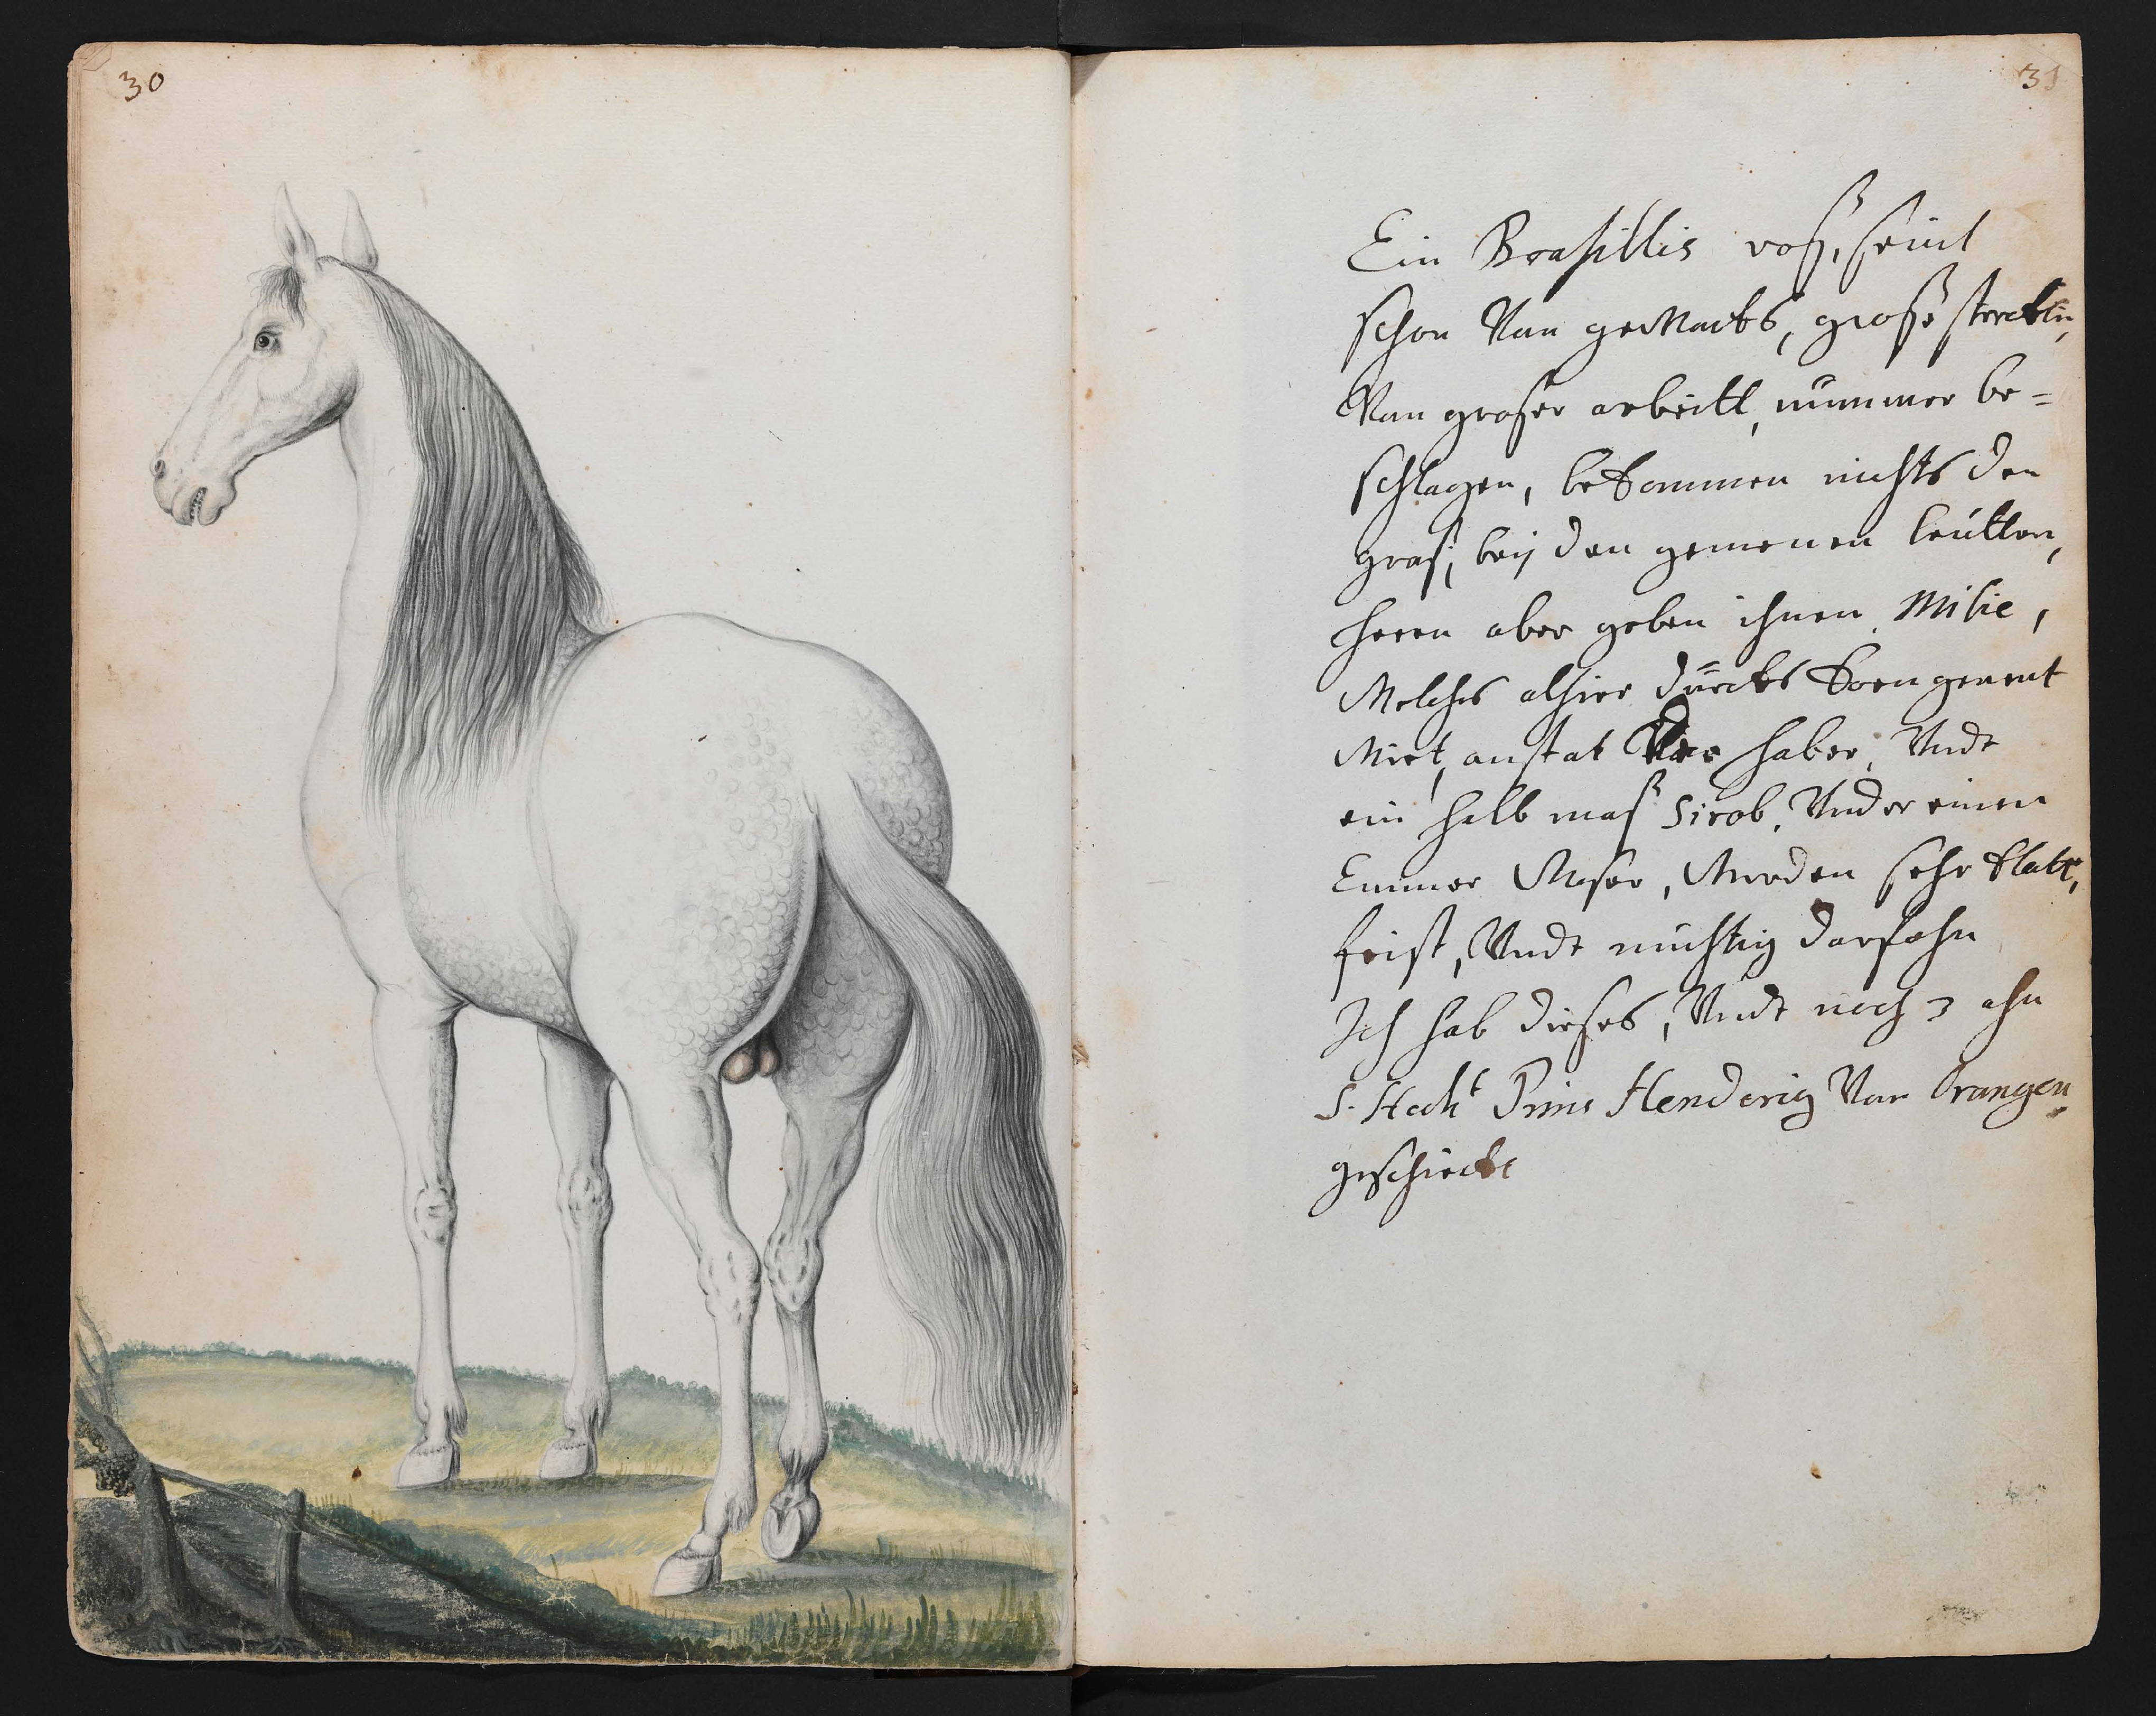 30
31
Ein Brasillis roß, seint
schon Van gewachs, große sterckte,
Van groser arbeitt, nummer be=
schlagen, bekommen nichts den
graß, beÿ den gemenen leütten,
heren aber geben ihnen Milie,
Welches alhier dürcks korn genent
Wirt, anstat Van haber, Vndt
ein halb maß Sirob, Vnder einen
Emmer Waser, Werden sehr klatt,
feist, Vndt muhtig darfohn
Ich hab dieses, Vndt noch 3 ahn
S. Hocht Prins Henderig Van Orangen
geschickt